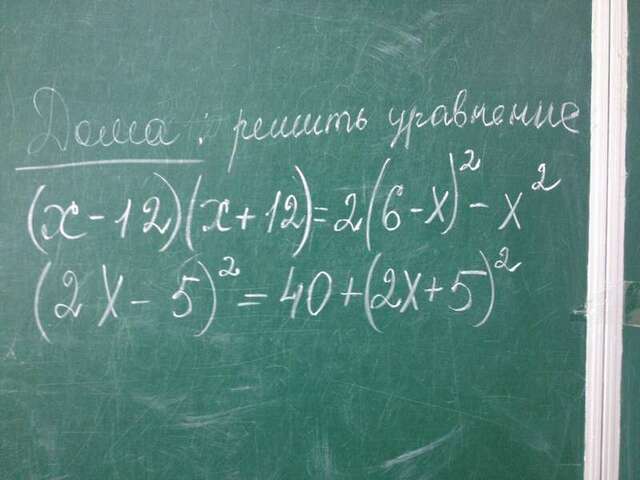 Дома: решить уравнение
(x-12)(x+12)=2(6-x)²-x²
(2x-5)²=40+(2x+5)²